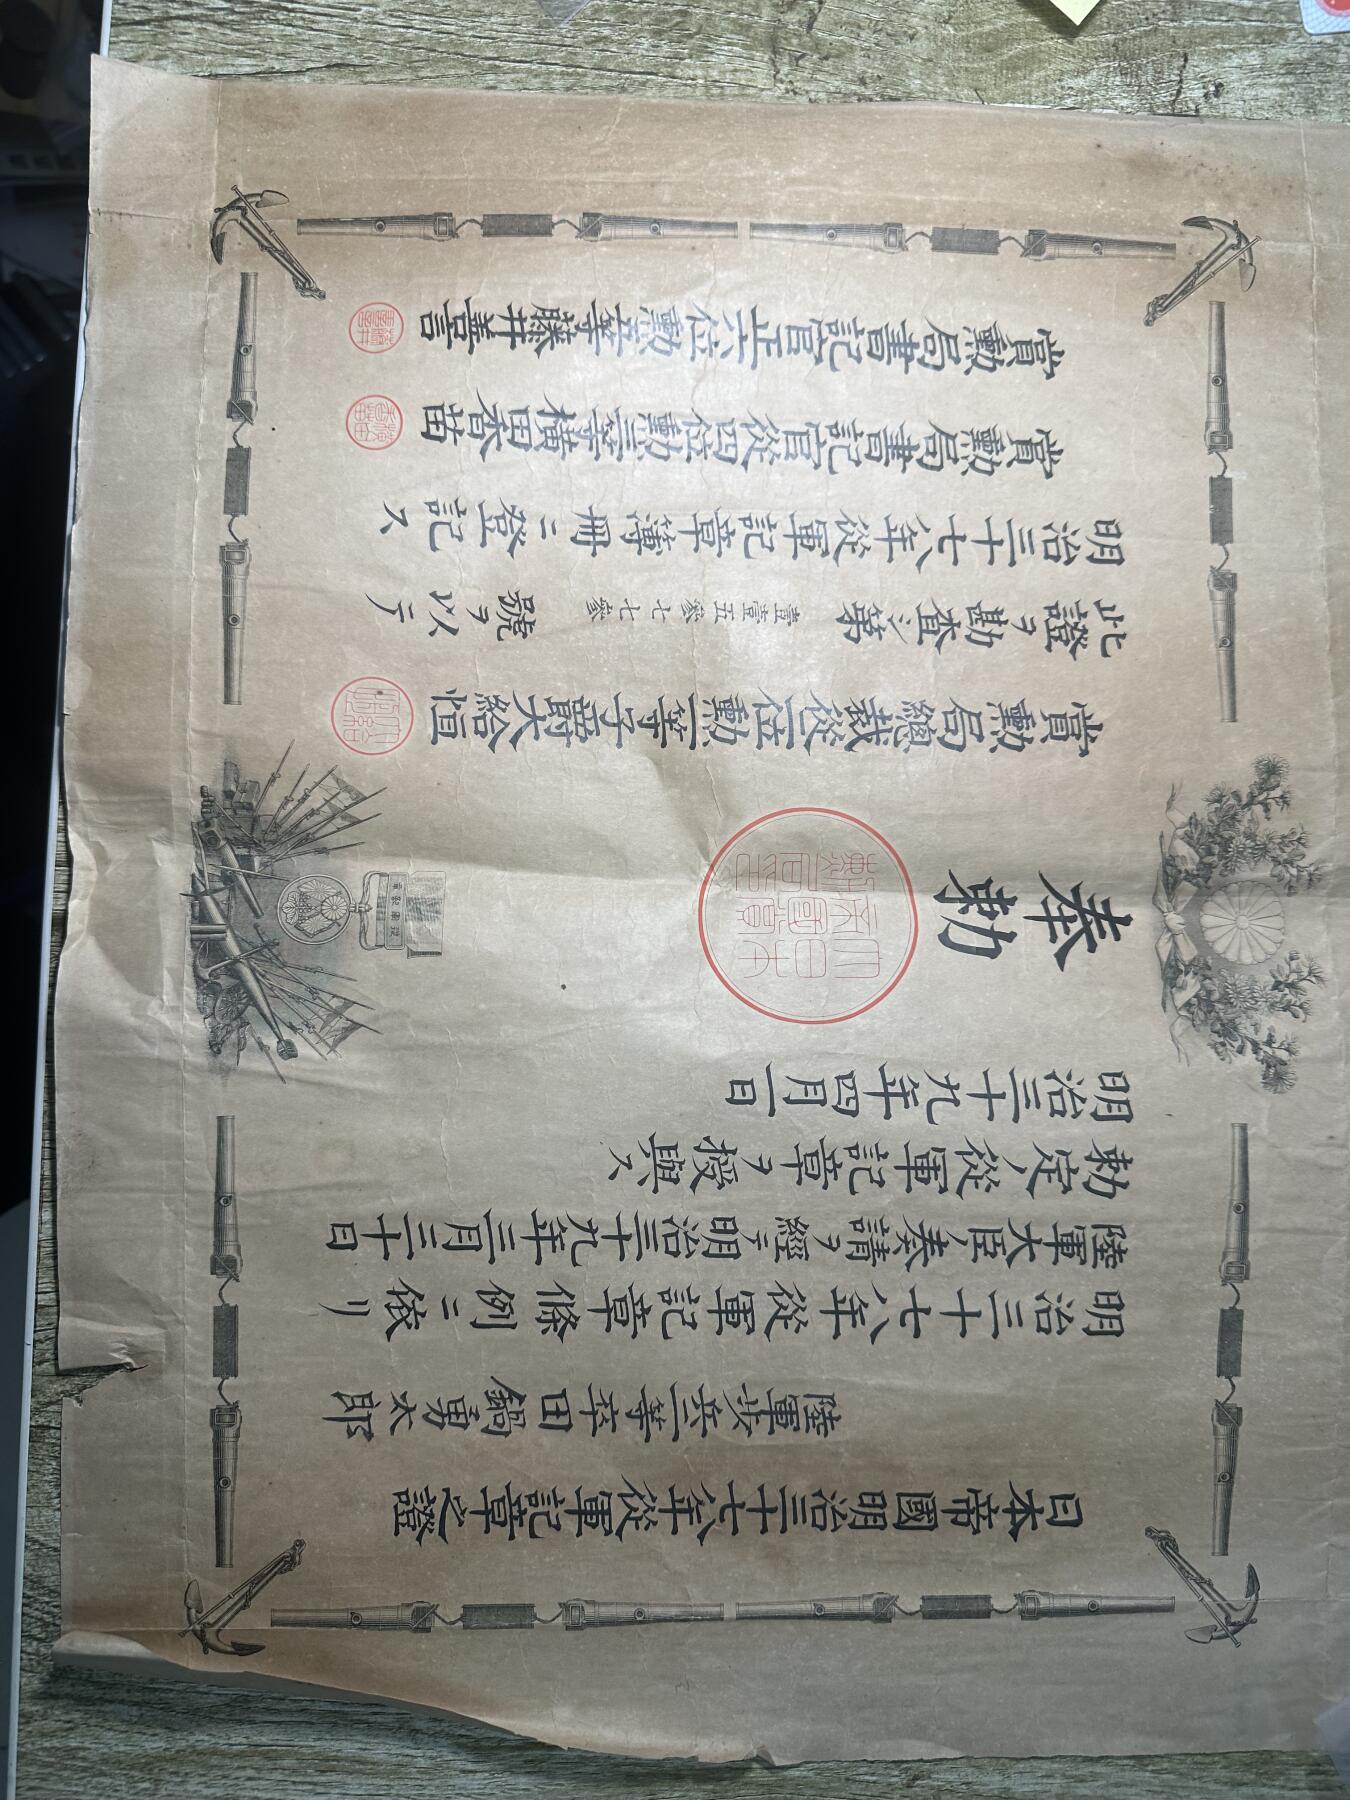 日本帝國明治三十七八年從軍記章之證
陸軍歩兵二等卒田鍋勇太郎
明治三十七八年從軍記章條例ニ依リ
陸軍大臣ノ奏請ヲ經テ明治三十九年三月三十日
勅定ノ從軍記章ヲ授與ス
明治三十九年四月一日
奉
勅
大日本帝國賞勳局印
章記軍從
賞勳局總裁從二位勳一等子爵大給恒
此證ヲ勘査シ第壹壹五參七七參號ヲ以テ
明治三十七八年從軍記章簿冊ニ登記ス
賞勳局書記官從四位勳三等橫田香苗
賞勳局書記官正六位勳五等藤井善言